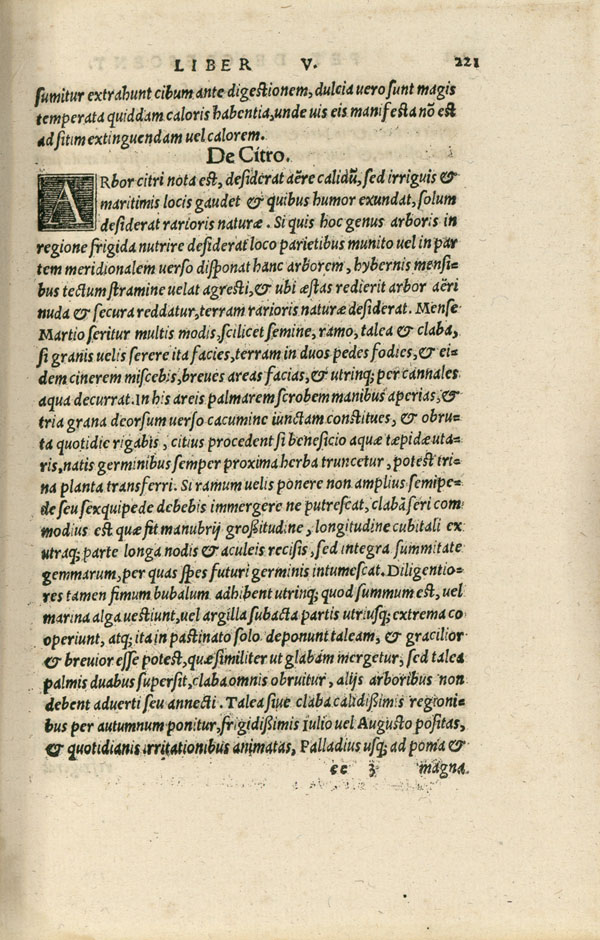 LIBER V. 221
sumitur extrahunt cibum ante digestionem, dulcia uero sunt magis
temperata quiddam caloris habentia, unde uis eis manifesta nõ est
ad sitim extinguendam uel calorem.
De Citro.
ARbor citri nota est, desiderat aëre calidũ, sed irriguis &
maritimis locis gaudet & quibus humor exundat, solum
desiderat rarioris naturæ. Si quis hoc genus arboris in
regione frigida nutrire desiderat loco parietibus munito uel in par
tem meridionalem uerso disponat hanc arborem, hybernis mensi-
bus tectum stramine uelat agresti, & ubi æstas redierit arbor aëri
nuda & secura reddatur, terram rarioris naturæ desiderat. Mense
Martio seritur multis modis, scilicet semine, ramo, talea & claba,
si granis uelis serere ita facies, terram in duos pedes fodies, & ei-
dem cinerem miscebis, breues areas facias, & utrinq; per cannales
aqua decurrat. In his areis palmarem scrobem manibus aperias, &
tria grana deorsum uerso cacumine iunctam constitues, & obru-
ta quotidie rigabis, citius procedent si beneficio aquæ tæpidæ uta-
ris, natis germinibus semper proxima herba truncetur, potest tri-
na planta transferri. Si ramum uelis ponere non amplius semipe-
de seu sexquipede debebis immergere ne putrescat, clabã seri com
modius est quæ fit manubrij großitudine, longitudine cubitali ex
utraq; parte longa nodis & aculeis recisis, sed integra summitate
gemmarum, per quas spes futuri germinis intumescat. Diligentio-
res tamen fimum bubalum adhibent utrinq; quod summum est, uel
marina alga uestiunt, uel argilla subacta partis utriusq; extrema co
operiunt, atq; ita in pastinato solo deponunt taleam, & gracilior
& breuior esse potest, quæ similiter ut glabam mergetur, sed talea
palmis duabus supersit, claba omnis obruitur, alijs arboribus non
debent aduerti seu annecti. Talea siue claba calidißimis regioni-
bus per autumnum ponitur, frigidißimis Iulio uel Augusto positas,
& quotidianis irritationibus animatas, Palladius usq; ad poma &
ee 3 magna